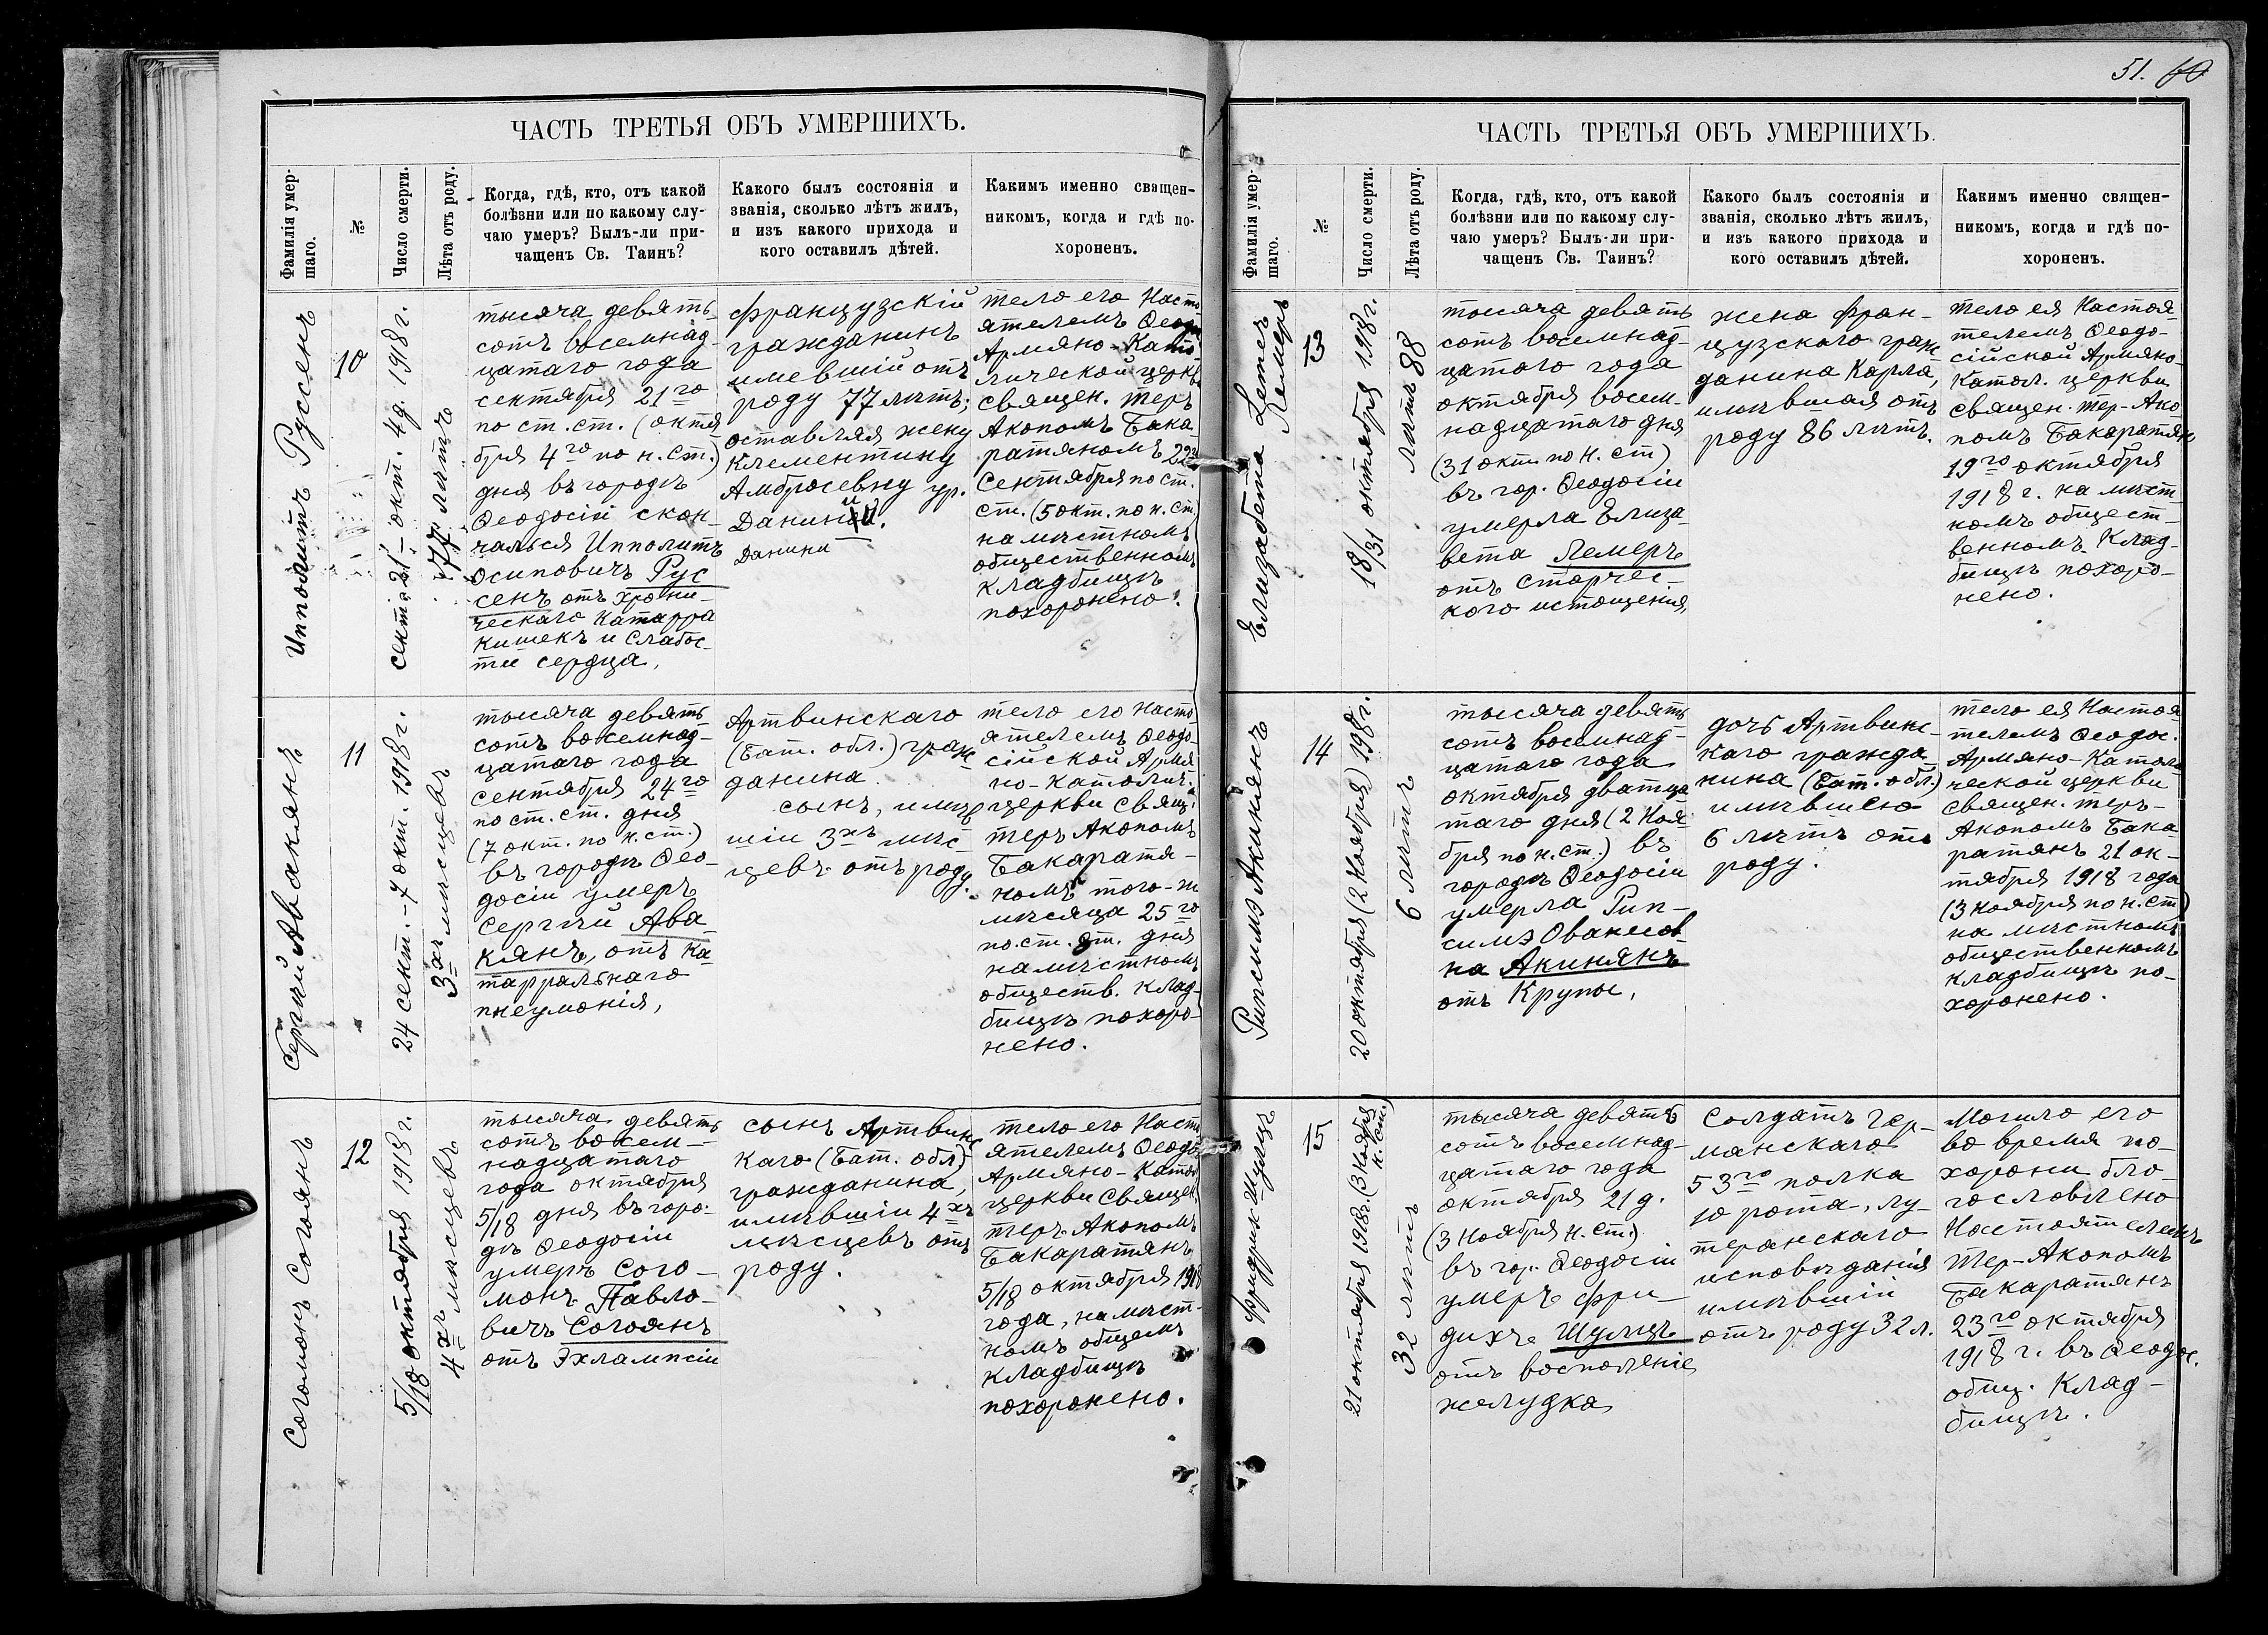 51.
ЧАСТЬ ТРЕТЬЯ ОБЪ УМЕРШИХЪ.
Фамилія умер-
шаго.
№
Число смерти.
Лѣта отъ роду.
Когда, гдѣ, кто, отъ какой
болѣзни или по какому слу-
чаю умеръ? Былъ-ли при-
чащенъ Св. Таинъ?
Какого былъ состоянія и
званія, сколько лѣтъ жилъ,
и изъ какого прихода и
кого оставилъ дѣтей.
Какимъ именно священ-
никомъ, когда и гдѣ по-
хороненъ.
Ипполитъ Руссенъ
10
сент. 21 – окт. 4д. 1918 г.
77 лѣтъ
тысяча девять-
сотъ восемнад-
цатаго года
сентября 21го
по ст. ст. (октя
бря 4го по н. ст.)
дня въ городѣ
Ѳеодосіи скон-
чалься Ипполитъ
Осиповичъ Рус
сенъ отъ хрони-
ческаго катарра
кишекъ и слабос-
ти сердца,
французскій
гражданинъ
имевшій отъ
роду 77 лѣтъ;
оставляя жену
Клементину
Амбросевну ур.
Данини
тело его Насто
ятелемъ Ѳеодо
Армяно-Като
лической церкв
священ. Теръ
Акопомъ Бака
ратяномъ 22го
Сентября по ст.
ст. (5 окт. по н. ст
на мѣстномъ
общественномъ
кладбищѣ
похоронено.
Сергѣй Авакянъ
11
24 сент. – 7 окт. 1918 г.
3хъ мѣсцевъ
тысяча девять
сотъ восемнад-
цатаго года
сентября 24го
по ст. ст. дня
(7 окт. по н. ст.)
въ городѣ Ѳео-
досіи умеръ
Сергѣй Ава-
кянъ, отъ ка
тарральнаго
пнеумонія,
Артвинскаго
(Бат. обл.) граж
данина
сынъ, имѣв
шіи 3хъ мѣс-
цевъ отъ роду.
тело его Насто
ятелемъ Ѳеодо
сійской Армя
но-Католич.
церкви свящ.
теръ Акопомъ
Бакаратя-
номъ того-же
мѣсяца 25го
по ст. ст. дня
на мѣстномъ
обществ. клад-
бищѣ похоро-
нено.
Согомонъ Согоянъ
12
5/18 октября 1918 г.
4хъ мѣсцевъ
тысяча девять
сотъ восем-
надцатаго
года октября
5/18 дня въ горо-
дѣ Ѳеодосіи
умеръ Сого-
монъ Павло-
вичъ Согоянъ
отъ Эхлампсіи
сынъ Артвинс
каго (Бат. обл)
гражданина,
имѣвшіи 4хъ
мѣсцевъ отъ
роду.
тело его Насто
ятелемъ Ѳеодо
Армяно-Катол
церкви Священ
теръ Акопомъ
Бакаратянъ
5/18 октября 1918
года, на мѣст-
номъ общемъ
кладбищѣ
похоронено.
ЧАСТЬ ТРЕТЬЯ ОБЪ УМЕРШИХЪ.
Фамилія умер-
шаго.
№
Число смерти.
Лѣта отъ роду.
Когда, гдѣ, кто, отъ какой
болѣзни или по какому слу-
чаю умеръ? Былъ-ли при-
чащенъ Св. Таинъ?
Какого былъ состоянія и
званія, сколько лѣтъ жилъ,
и изъ какого прихода и
кого оставилъ дѣтей.
Какимъ именно священ-
никомъ, когда и гдѣ по-
хороненъ.
Елизабета
Лемеръ
13
18/31 октября 1918 г.
лѣтъ 88
тысяча девять
сотъ восемнад-
цатаго года
октября восем-
надцатаго дня
(31 окт. по н. ст)
въ гор. Ѳеодосіи
умерла Елиза-
вета Лемеръ
отъ старчес-
кого истощенія,
жена фран-
цузскаго граж
данина Карла,
имѣвшая отъ
роду 86 лѣтъ.
тело ея Настоя
телемъ Ѳеодо-
сійской Армяно-
Катол. церкви
священ. Тер-Ако
помъ Бакаратян
19го октября
1918 г. на мѣст-
номъ общест-
венномъ клад-
бищѣ похоро-
нено.
Рипсимэ Акинянъ
14
20 октября (2 Ноября) 1918 г.
6 лѣтъ
тысяча девять
сотъ восемнад-
цатаго года
октября дватца
таго дня (2 Ноя-
бря по н. ст.) въ
городѣ Ѳеодосіи
умерла Рип-
симэ Ованесов
на Акинянъ
отъ Крупы,
дочь Артвинс-
каго гражда
нина (Бат. обл.)
имѣвшею
6 лѣтъ отъ
роду.
тело ея Настоя
телемъ Ѳеодос.
Армяно-Католи
ческой церкви
священ. теръ-
Акопомъ Бака
ратянъ 21 ок-
тября 1918 года
(3 Ноября по н. ст)
на мѣстномъ
общественномъ
кладбищѣ по-
хоронено.
Фридрих Шульцъ
15
21 октября 1918 г. (3 Ноября
н. ст.)
32 лѣтъ
тысяча девять
сотъ восемнад-
цатаго года
октября 21 д.
(3 Ноября н. ст.)
въ гор. Ѳеодосіи
умеръ фри-
дихъ Шульцъ
отъ восполеніе
желудка
Солдатъ Гер-
манскаго
53го полка
10 рота, лу-
теранскаго
исповѣданія
имѣвшіи
отъ роду 32 л.
Могила его
во время по-
хорони бла-
гословлено
Настоятелемъ
Тер-Акопомъ
Бакаратянъ
23го октября
1918 г. въ Ѳеодос.
общ. Клад-
бищѣ.